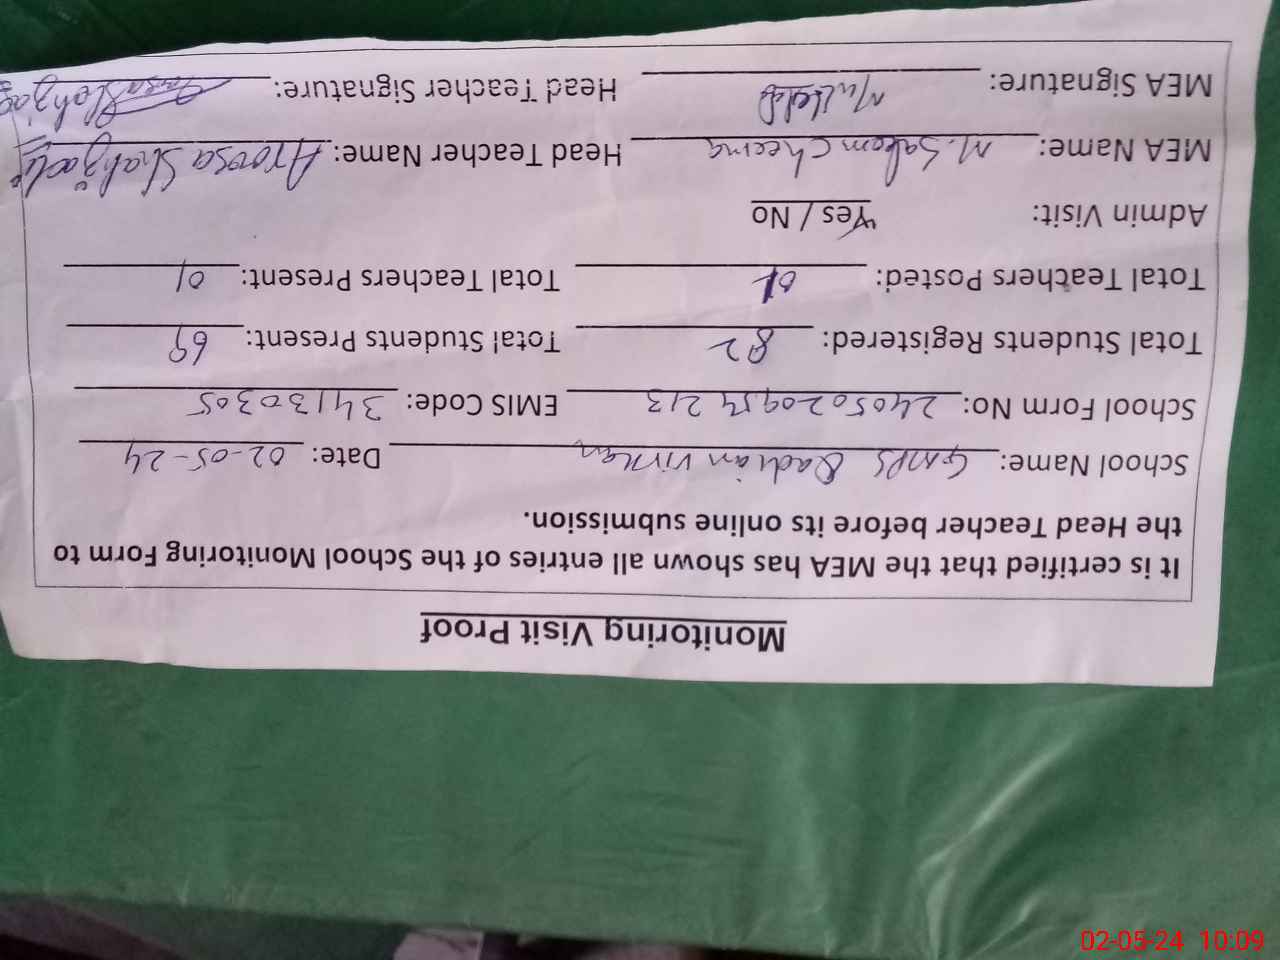 Monitoring Visit Proof
It is certified that the MEA has shown all entries of the School Monitoring Form to
the Head Teacher before its online submission.
School Name: GMPS Qadian virkan Date: 02-05-24
School Form No: 2405020954213 EMIS Code: 34130305
Total Students Registered: 82 Total Students Present: 69
Total Teachers Posted: 01 Total Teachers Present: 01
Admin Visit: Yes / No
MEA Name: M. Saleem Cheema Head Teacher Name: Aroosa Shahzadi
MEA Signature: Head Teacher Signature: Aroosa Shahzadi
02-05-24 10:09